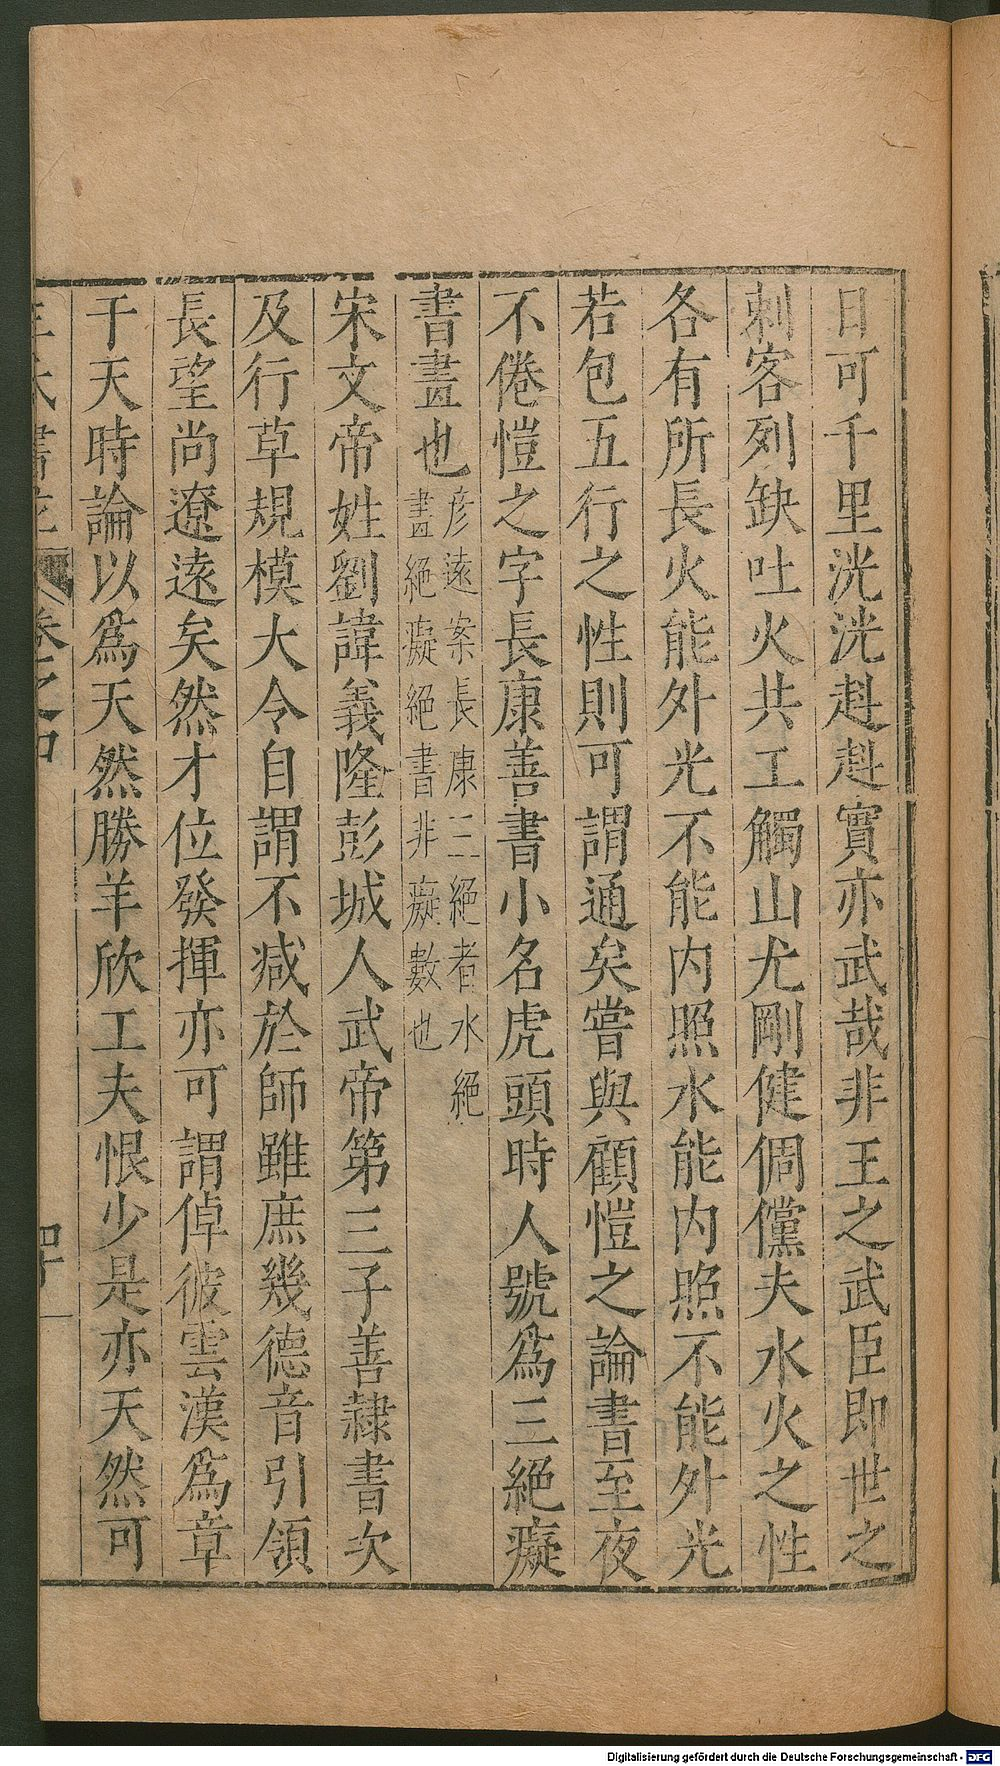 日可千里洸洸赳赳實亦武哉非王之武臣即世之
刺客列缺吐火共工觸山尤剛健倜儻夫水火之性
各有所長火能外光不能內照水能內照不能外光
若包五行之性則可謂通矣嘗與顧愷之論書至夜
不倦愷之字長康善書小名虎頭時人號為三絕癡
書畫也彥遠案長康三絕者水絕
畫絕癡絕書非癡數也
宋文帝姓劉諱義隆彭城人武帝第三子善隸書次
及行草規模大令自謂不減於師雖庶幾德音引領
長望尚遼遠矣然才位發揮亦可謂倬彼雲漢為章
于天時論以為天然勝羊欣工夫恨少是亦天然可
卷之四
四十一
Digitalisierung gefördert durch die Deutsche Forschungsgemeinschaft - DFG